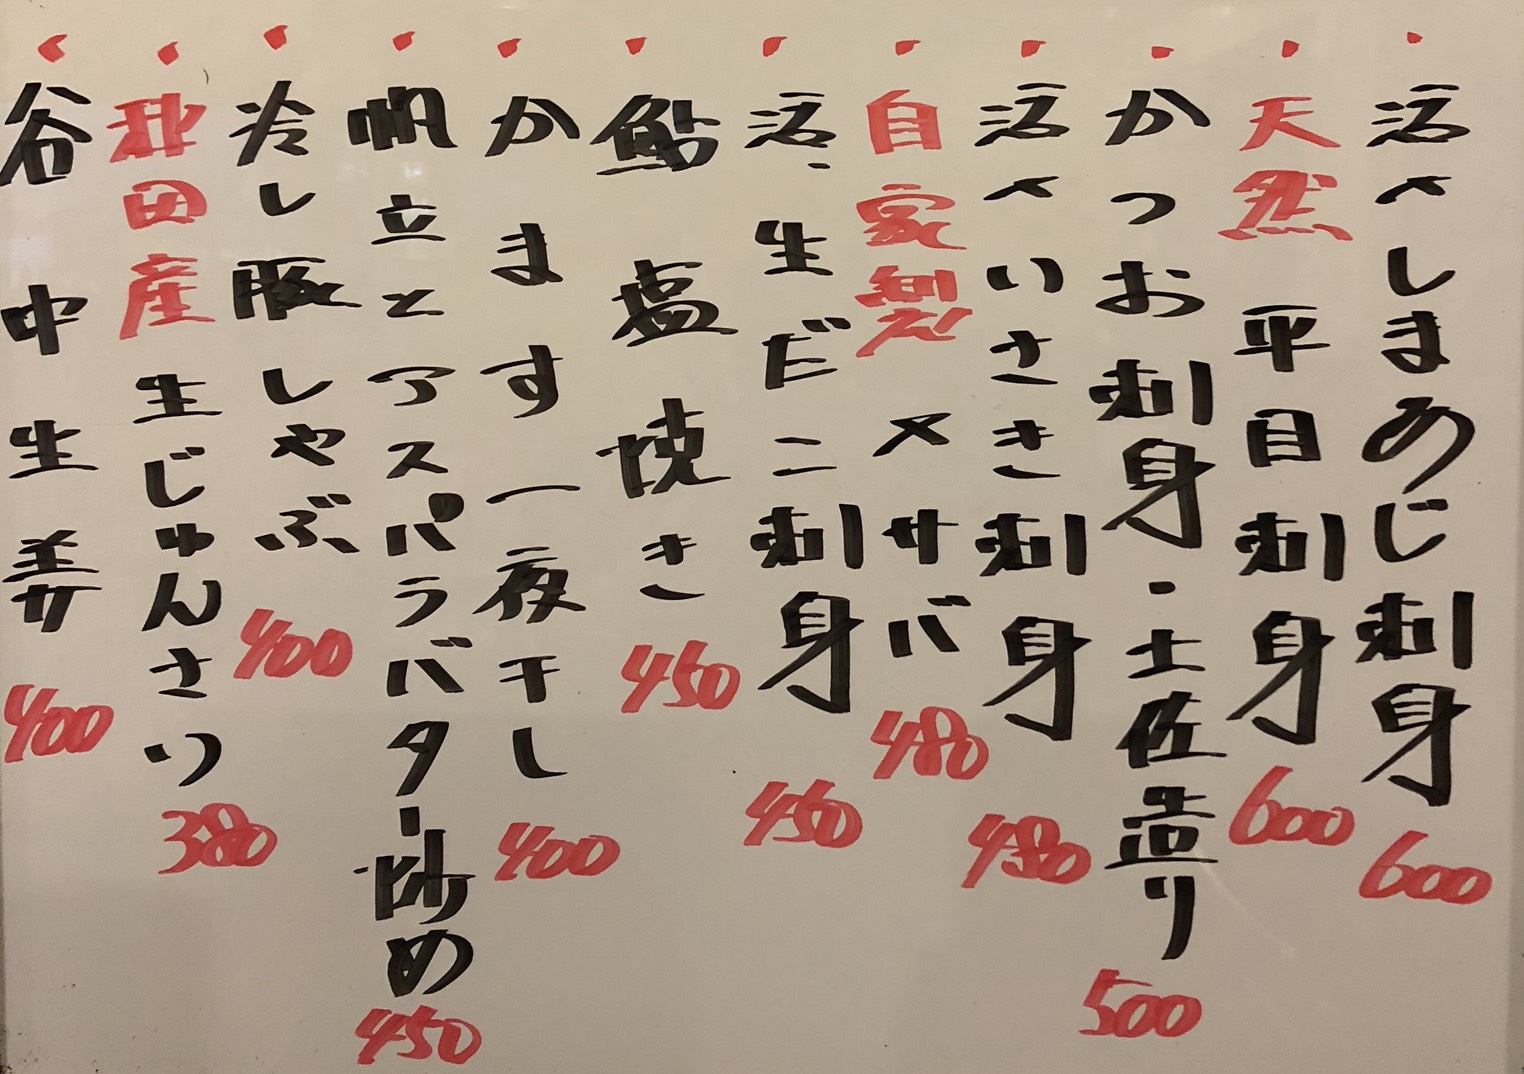 活〆しまあじ刺身 600
天然 平目刺身 600
かつお刺身・土佐造り 500
活〆いさき刺身 480
自家製 〆サバ 480
活、生ダコ刺身 450
鮎塩焼き 450
かます一夜干し 400
帆立とアスパラバター炒め 450
冷し豚しゃぶ 400
秋田産 生じゅんさい 380
谷中生姜 400